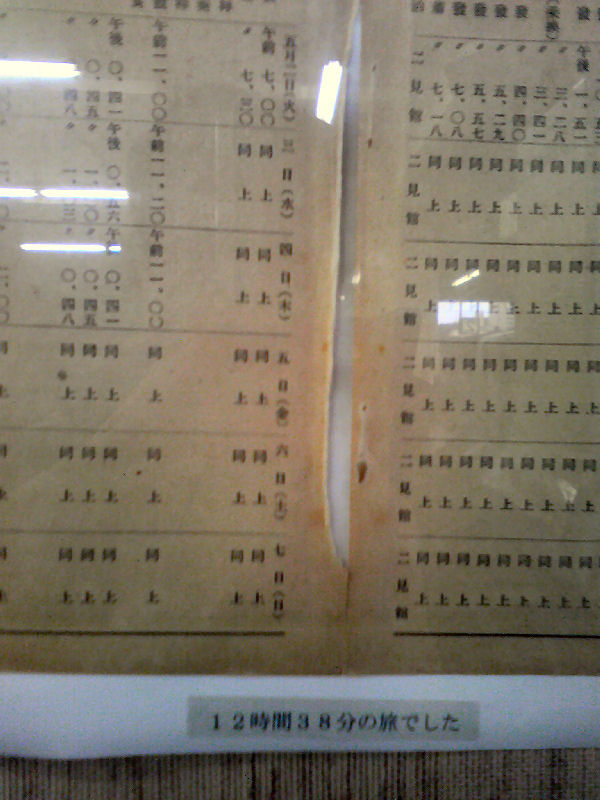 三、二八 同上 同上 同上 同上 同上
發 〃 三、四一 同上 同上 同上 同上 同上
發 〃 四、四〇 同上 同上 同上 同上 同上
發 〃 五、二九 同上 同上 同上 同上 同上
發 〃 五、五七 同上 同上 同上 同上 同上
發 〃 七、〇八 同上 同上 同上 同上 同上
着 〃 七、一八 同上 同上 同上 同上 同上
泊 二見館 二見館 二見館 二見館 二見館 二見館
五月二日(火) 三日(水) 四日(木) 五日(金) 六日(土) 七日(日)
午前 七、〇〇 同上 同上 同上 同上 同上
〃 七、三〇 同上 同上 同上 同上 同上
午前一一、〇〇 午前一一、二〇 午前一一、〇〇 同上 同上 同上
午後 〇、四一 午後 〇、五六 午後 〇、四一 同上 同上 同上
〃 〇、四五 〃 一、〇〇 〃 〇、四五 同上 同上 同上
〃 〇、四八 〃 一、〇三 〃 〇、四八 同上 同上 同上
12時間38分の旅でした